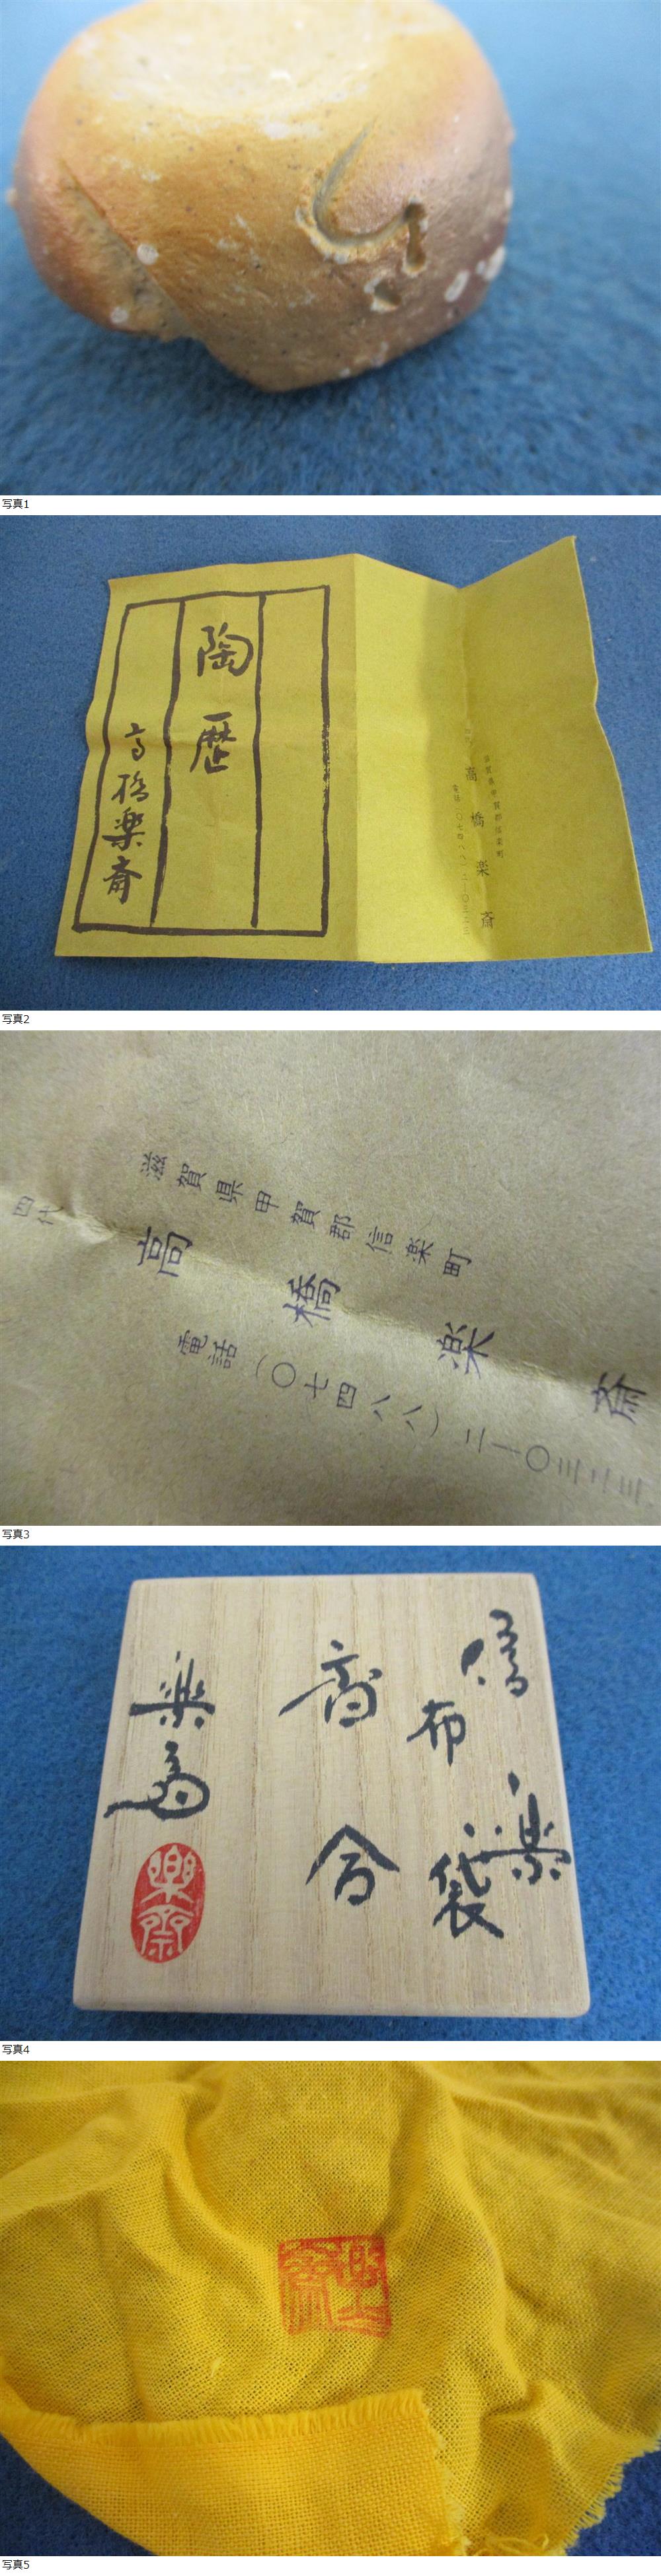 写真1
陶歴
高橋楽斎
滋賀県甲賀郡信楽町
高橋楽斎
電話(〇七四八八)二―〇三二三
写真2
滋賀県甲賀郡信楽町
四代
高橋楽斎
電話(〇七四八八)二―〇三二三
写真3
信楽
布袋
香合
楽斎
樂齋
写真4
樂齋
写真5